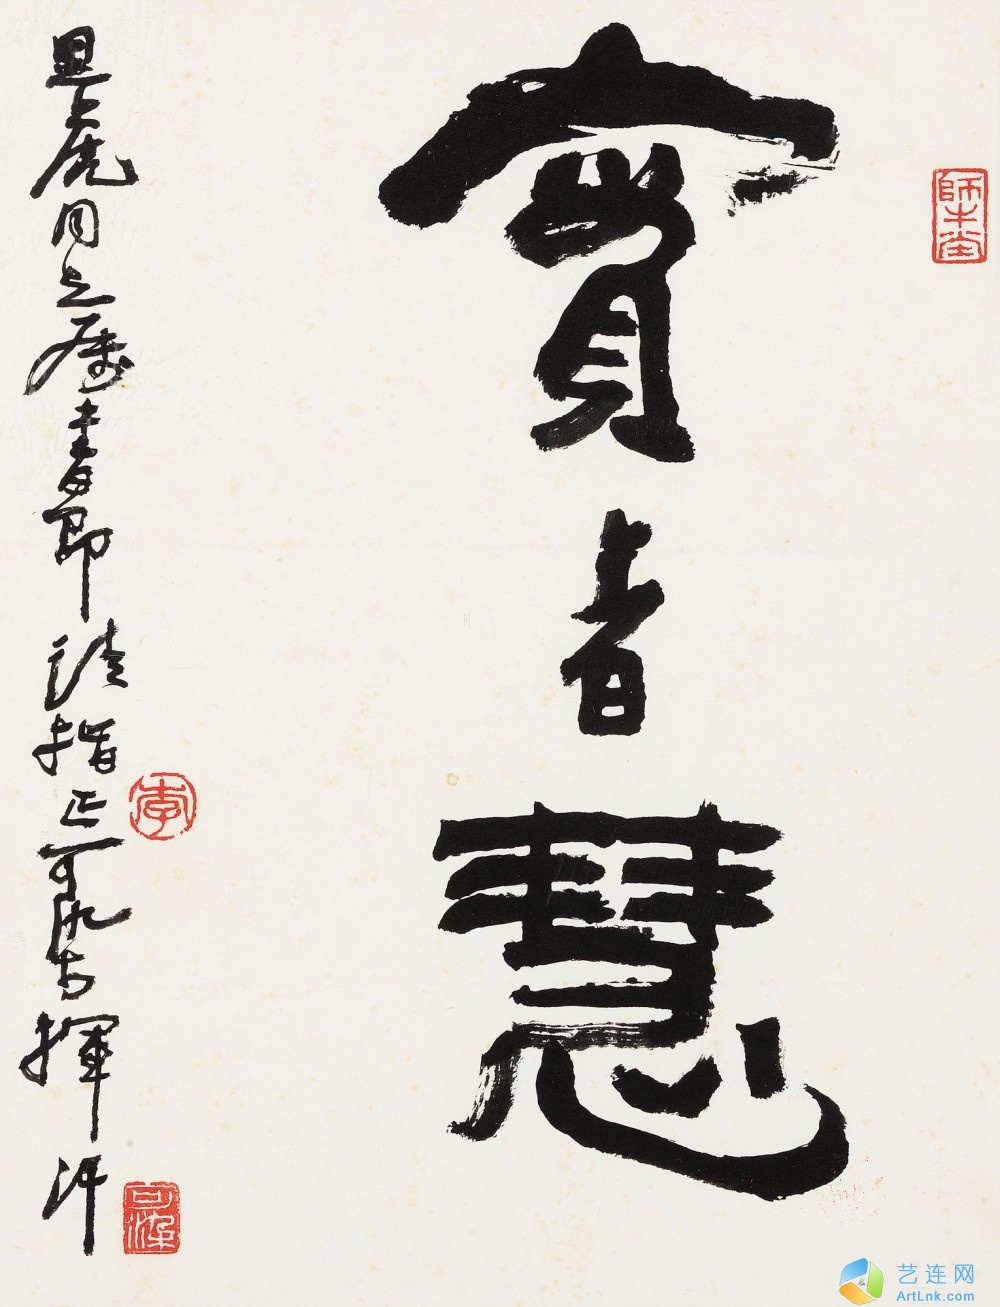 師牛堂
實者慧
同志属書即请指正可染揮汗
李
可染
艺连网
ArtLnk.com